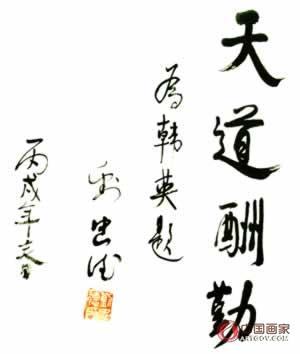 天道酬勤
為韓英題
忠德
丙戌年
中国画家
ARTGOV.COM